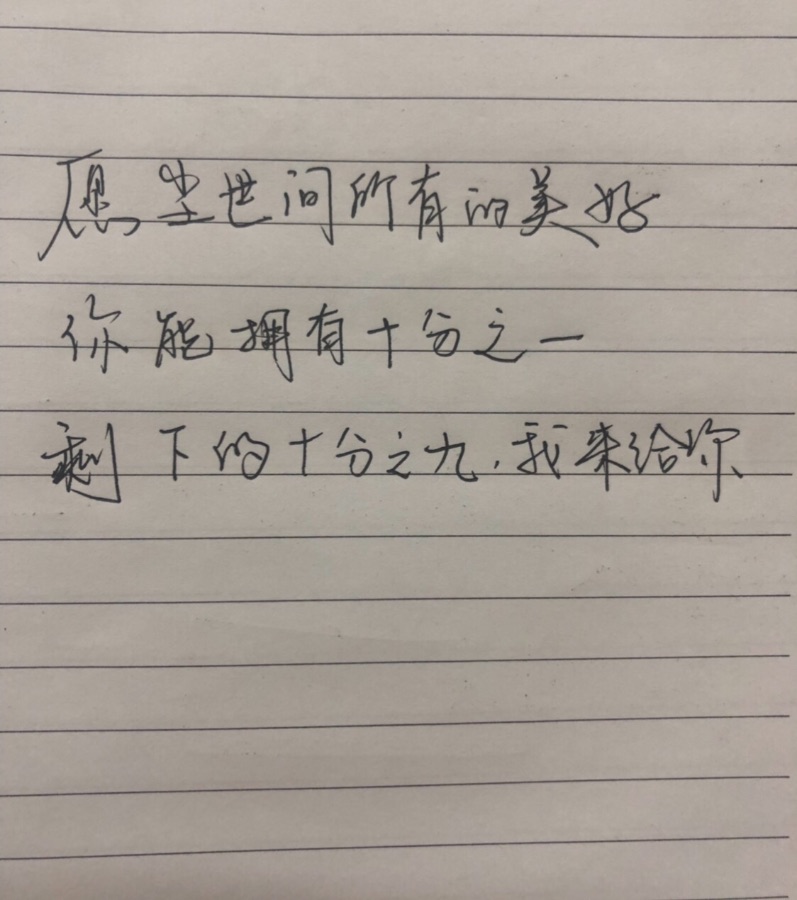 愿尘世间所有的美好
你能拥有十分之一
剩下的十分之九,我来给你